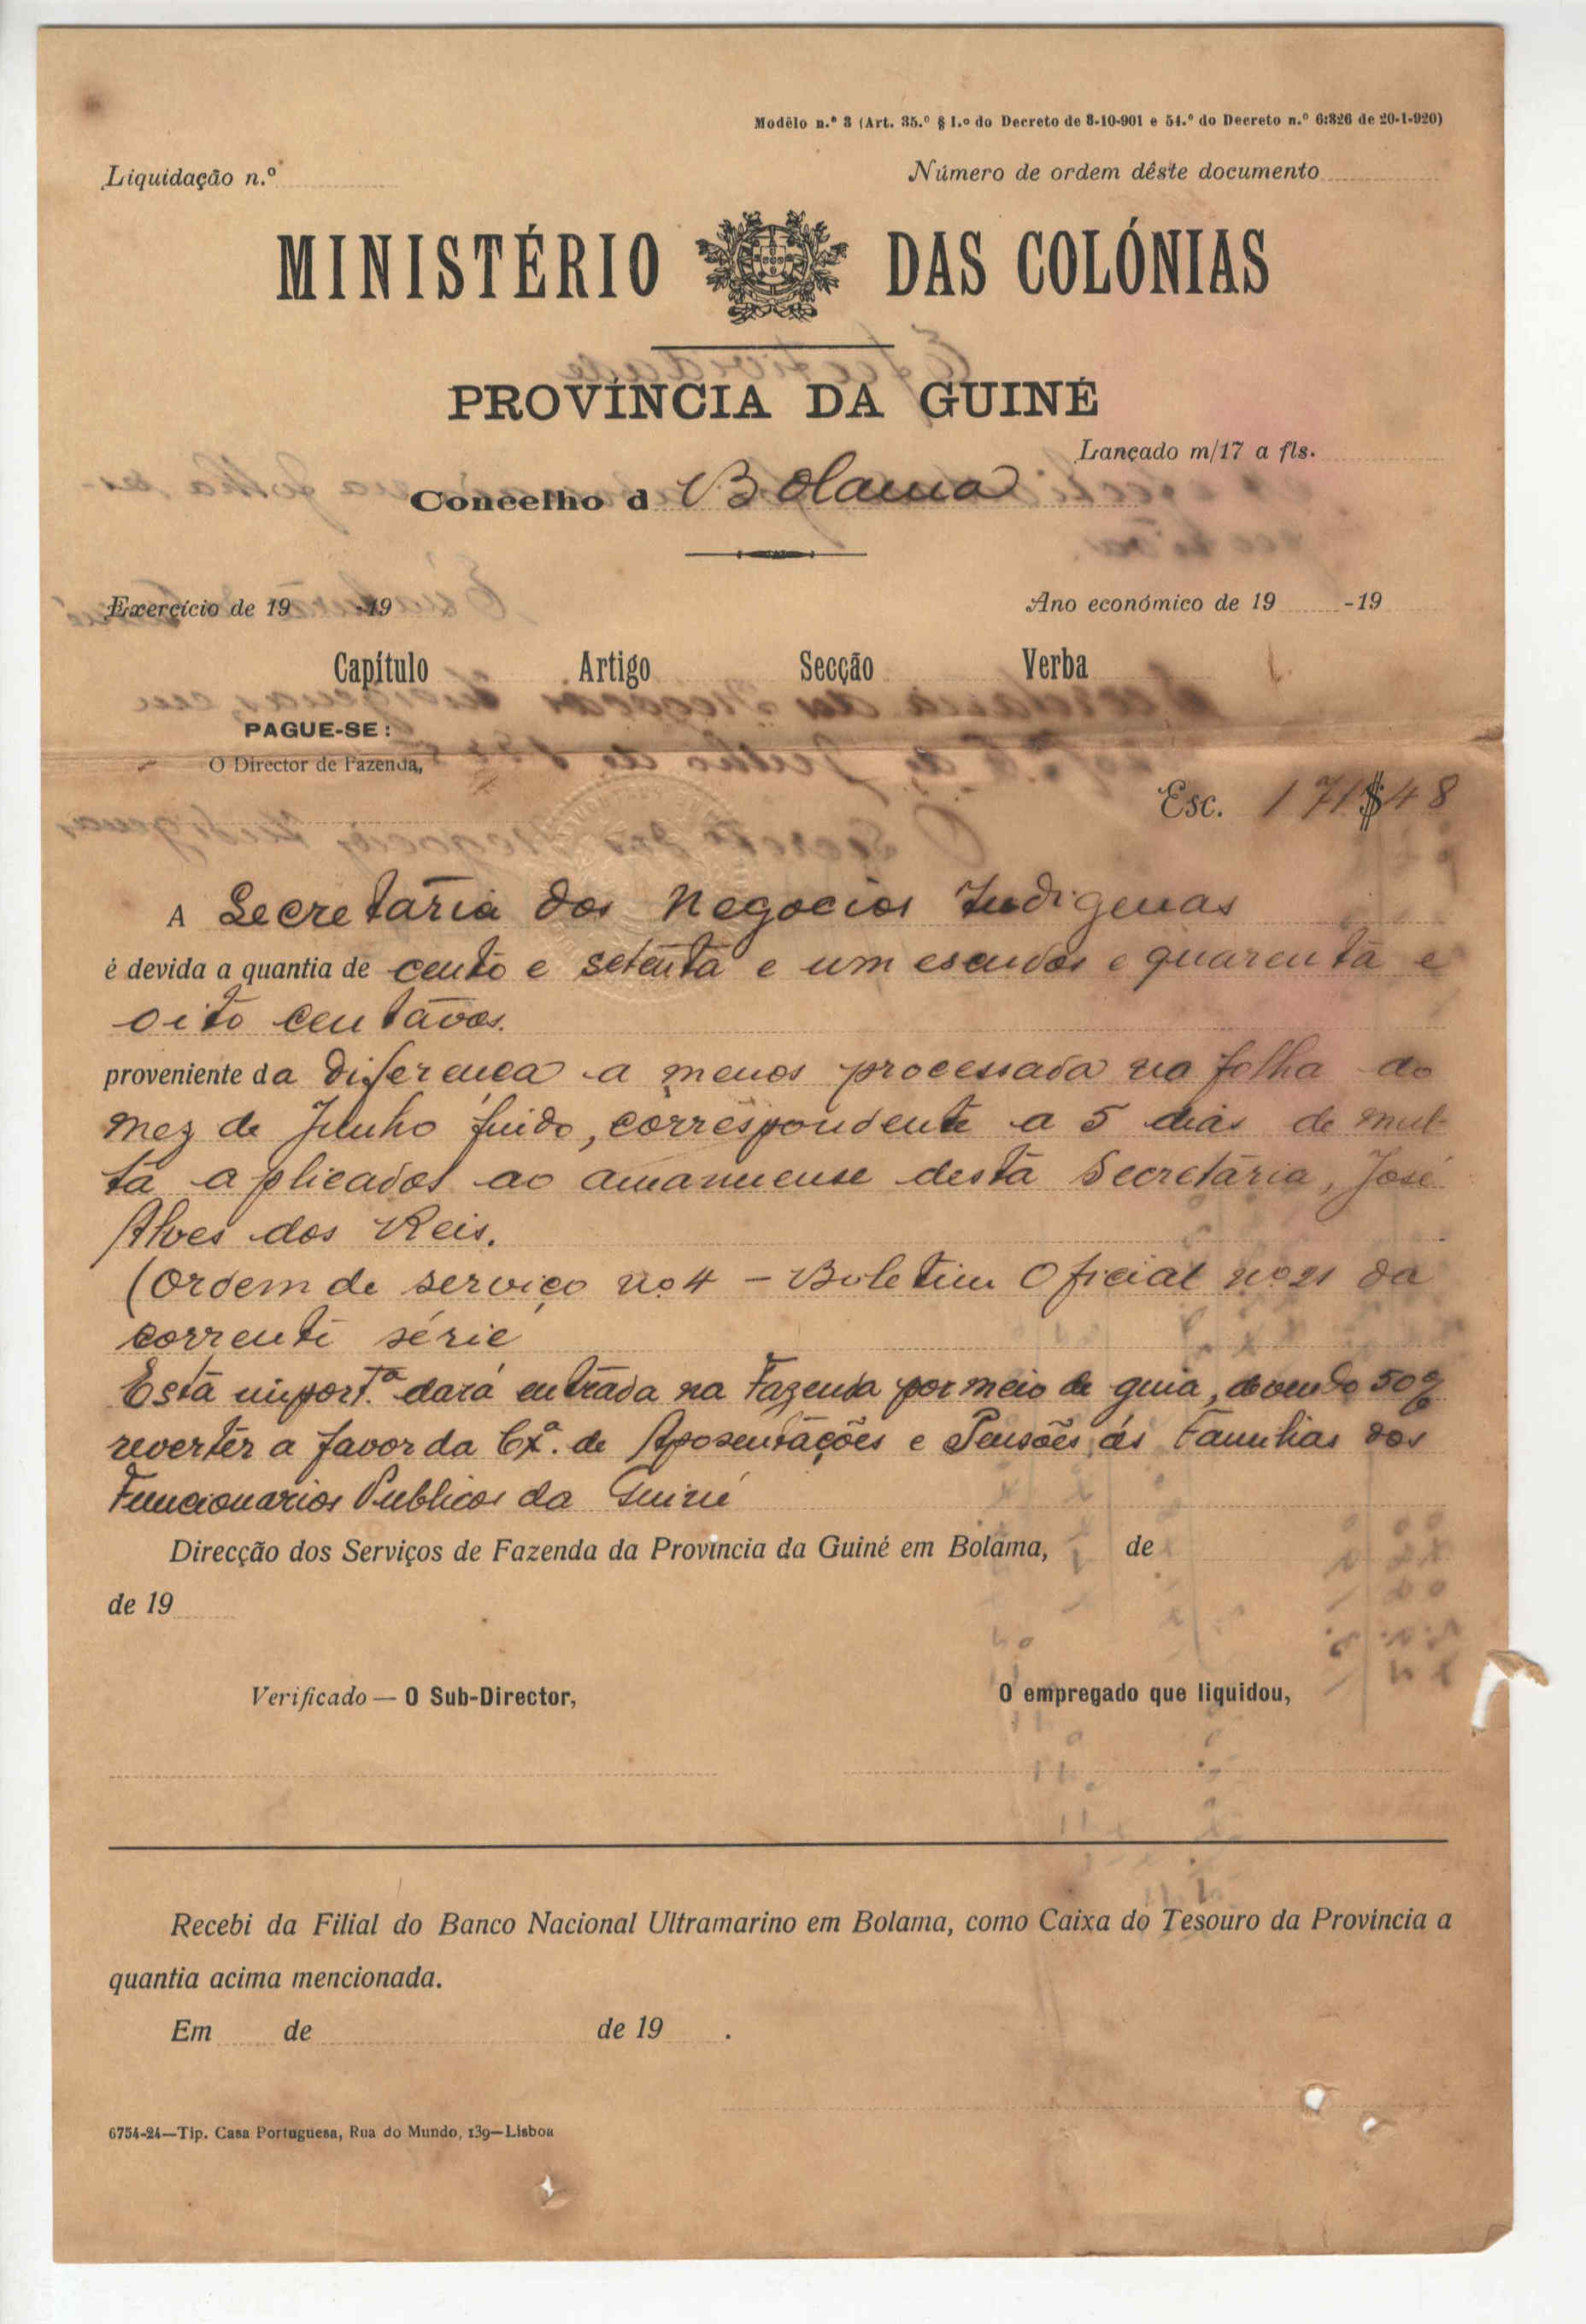 Modêlo n.º 3 (Art. 35.º § 1.º do Decreto de 8-10-901 e 54.º do Decreto n.º 6:826 de 20-1-920)
Liquidação n.º
Número de ordem dêste documento
MINISTÉRIO DAS COLÓNIAS
PROVÍNCIA DA GUINÉ
Lançado m/17 a fls.
Concelho d Bolama
Exercício de 19 -19
Ano económico de 19 -19
Capítulo Artigo Secção Verba
PAGUE-SE:
O Director de Fazenda,
Esc. 171$48
A Secretaria dos Negocios Indigenas
é devida a quantia de cento e setenta e um escudos e quarenta e
oito centavos.
proveniente da diferença a menos processada na folha do
mez de Junho findo, correspondente a 5 dias de mul-
ta aplicados ao amanuense desta Secretaria, José
Alves dos Reis.
(Ordem de serviço nº 4 – Boletim Oficial nº 21 da
corrente série
Esta import.ª dará entrada na Fazenda por meio de guia, devendo 50%
reverter a favor da Cx.ª de Aposentações e Pensões ás Familias dos
Funcionarios Publicos da Guiné
Direcção dos Serviços de Fazenda da Província da Guiné em Bolama, de
de 19
Verificado — O Sub-Director,
O empregado que liquidou,
Recebi da Filial do Banco Nacional Ultramarino em Bolama, como Caixa do Tesouro da Província a
quantia acima mencionada.
Em de de 19 .
6754-24—Tip. Casa Portuguesa, Rua do Mundo, 139—Lisboa